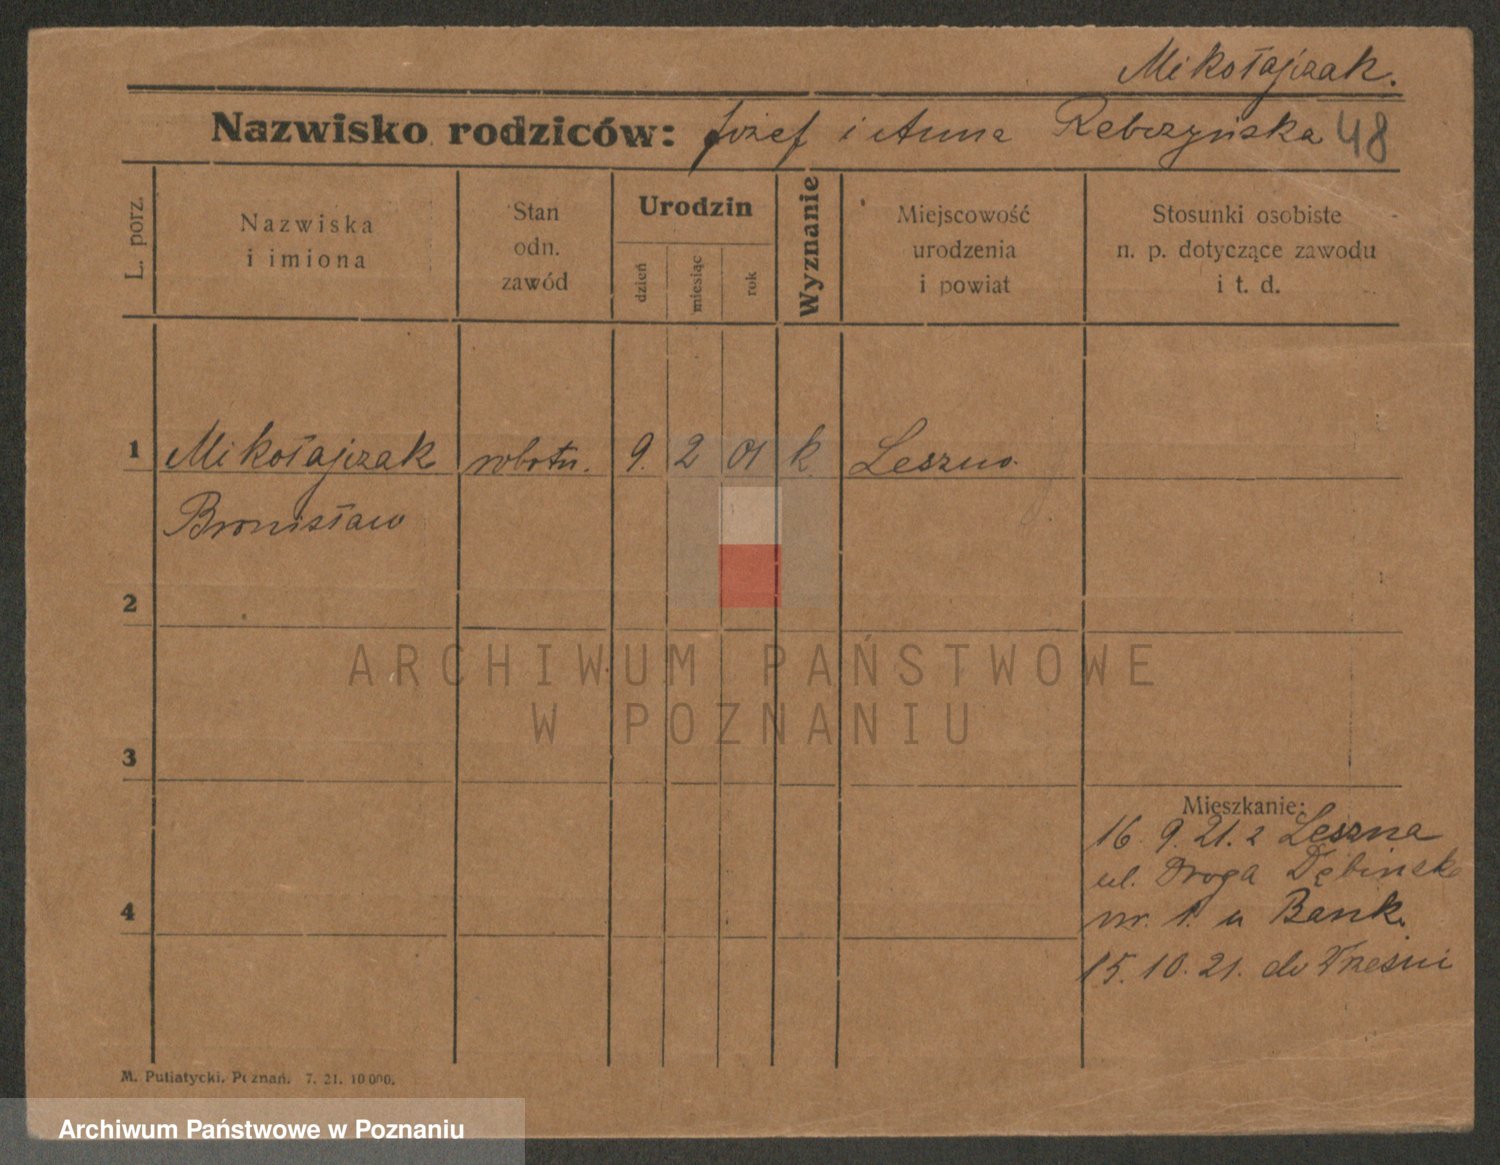 Mikołajczak.
Nazwisko rodziców: Józef i Anna Rebczyńska 48
L. porz.
Nazwiska
i imiona
Stan
odn.
zawód
Urodzin
dzień
miesiąc
rok
Wyznanie
Miejscowość
urodzenia
i powiat
Stosunki osobiste
n. p. dotyczące zawodu
i t. d.
1 Mikołajczak robotn. 9. 2 01 k. Leszno.
Bronisław
2
3
4
Mieszkanie:
16. 9. 21. z Leszna
ul. Droga Dębińska
nr. 1. u Bank.
15. 10. 21. do Wrześni
M. Putiatycki, Poznań. 7. 21. 10000.
ARCHIWUM PAŃSTWOWE
W POZNANIU
Archiwum Państwowe w Poznaniu